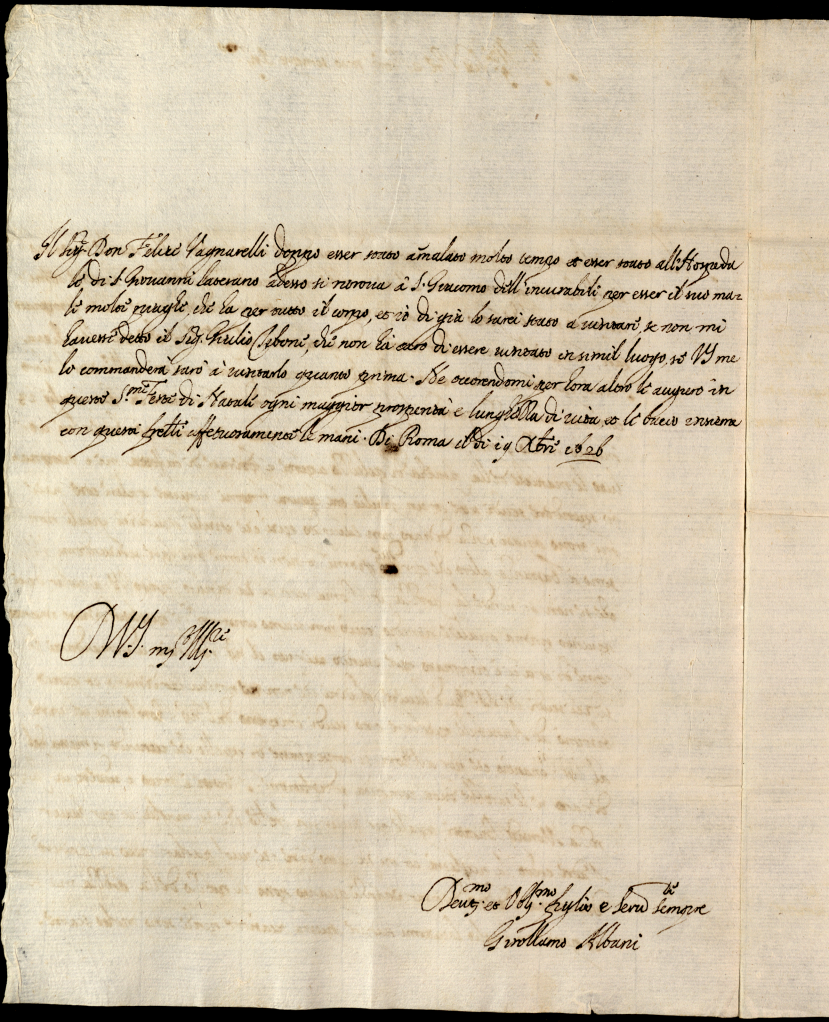 Il Sig.r Don Felice Vagnarelli doppo esser stato amalato molto tempo et esser stato all'Hospeda
le, di S. Giovanni laterano adesso si ritrova à S. Giacomo dell'incurabili per esser il suo ma=
le molte piaghe, che ha per tutto il corpo, et io di già lo sarei stato a visitare, se non mi
havesse detto il Sig.r Giulio, che non ha caro di essere visitato in simil luogo, se VS me
lo commanderà sarò à visitarlo quanto prima. Ne occorendomi per hora altro le auguro in
queste S.me feste di Natale ogni maggior prosperità e lunghezza di vita, et le bacio insieme
con questi fr̃elli affettuosamente le mani. Di Roma il di 19 Xbre 1626
D VS. mẓ Ill.re
Devṭ.mo et Obḷ.mo figlio e Ser.re sempre
Girollamo Albani